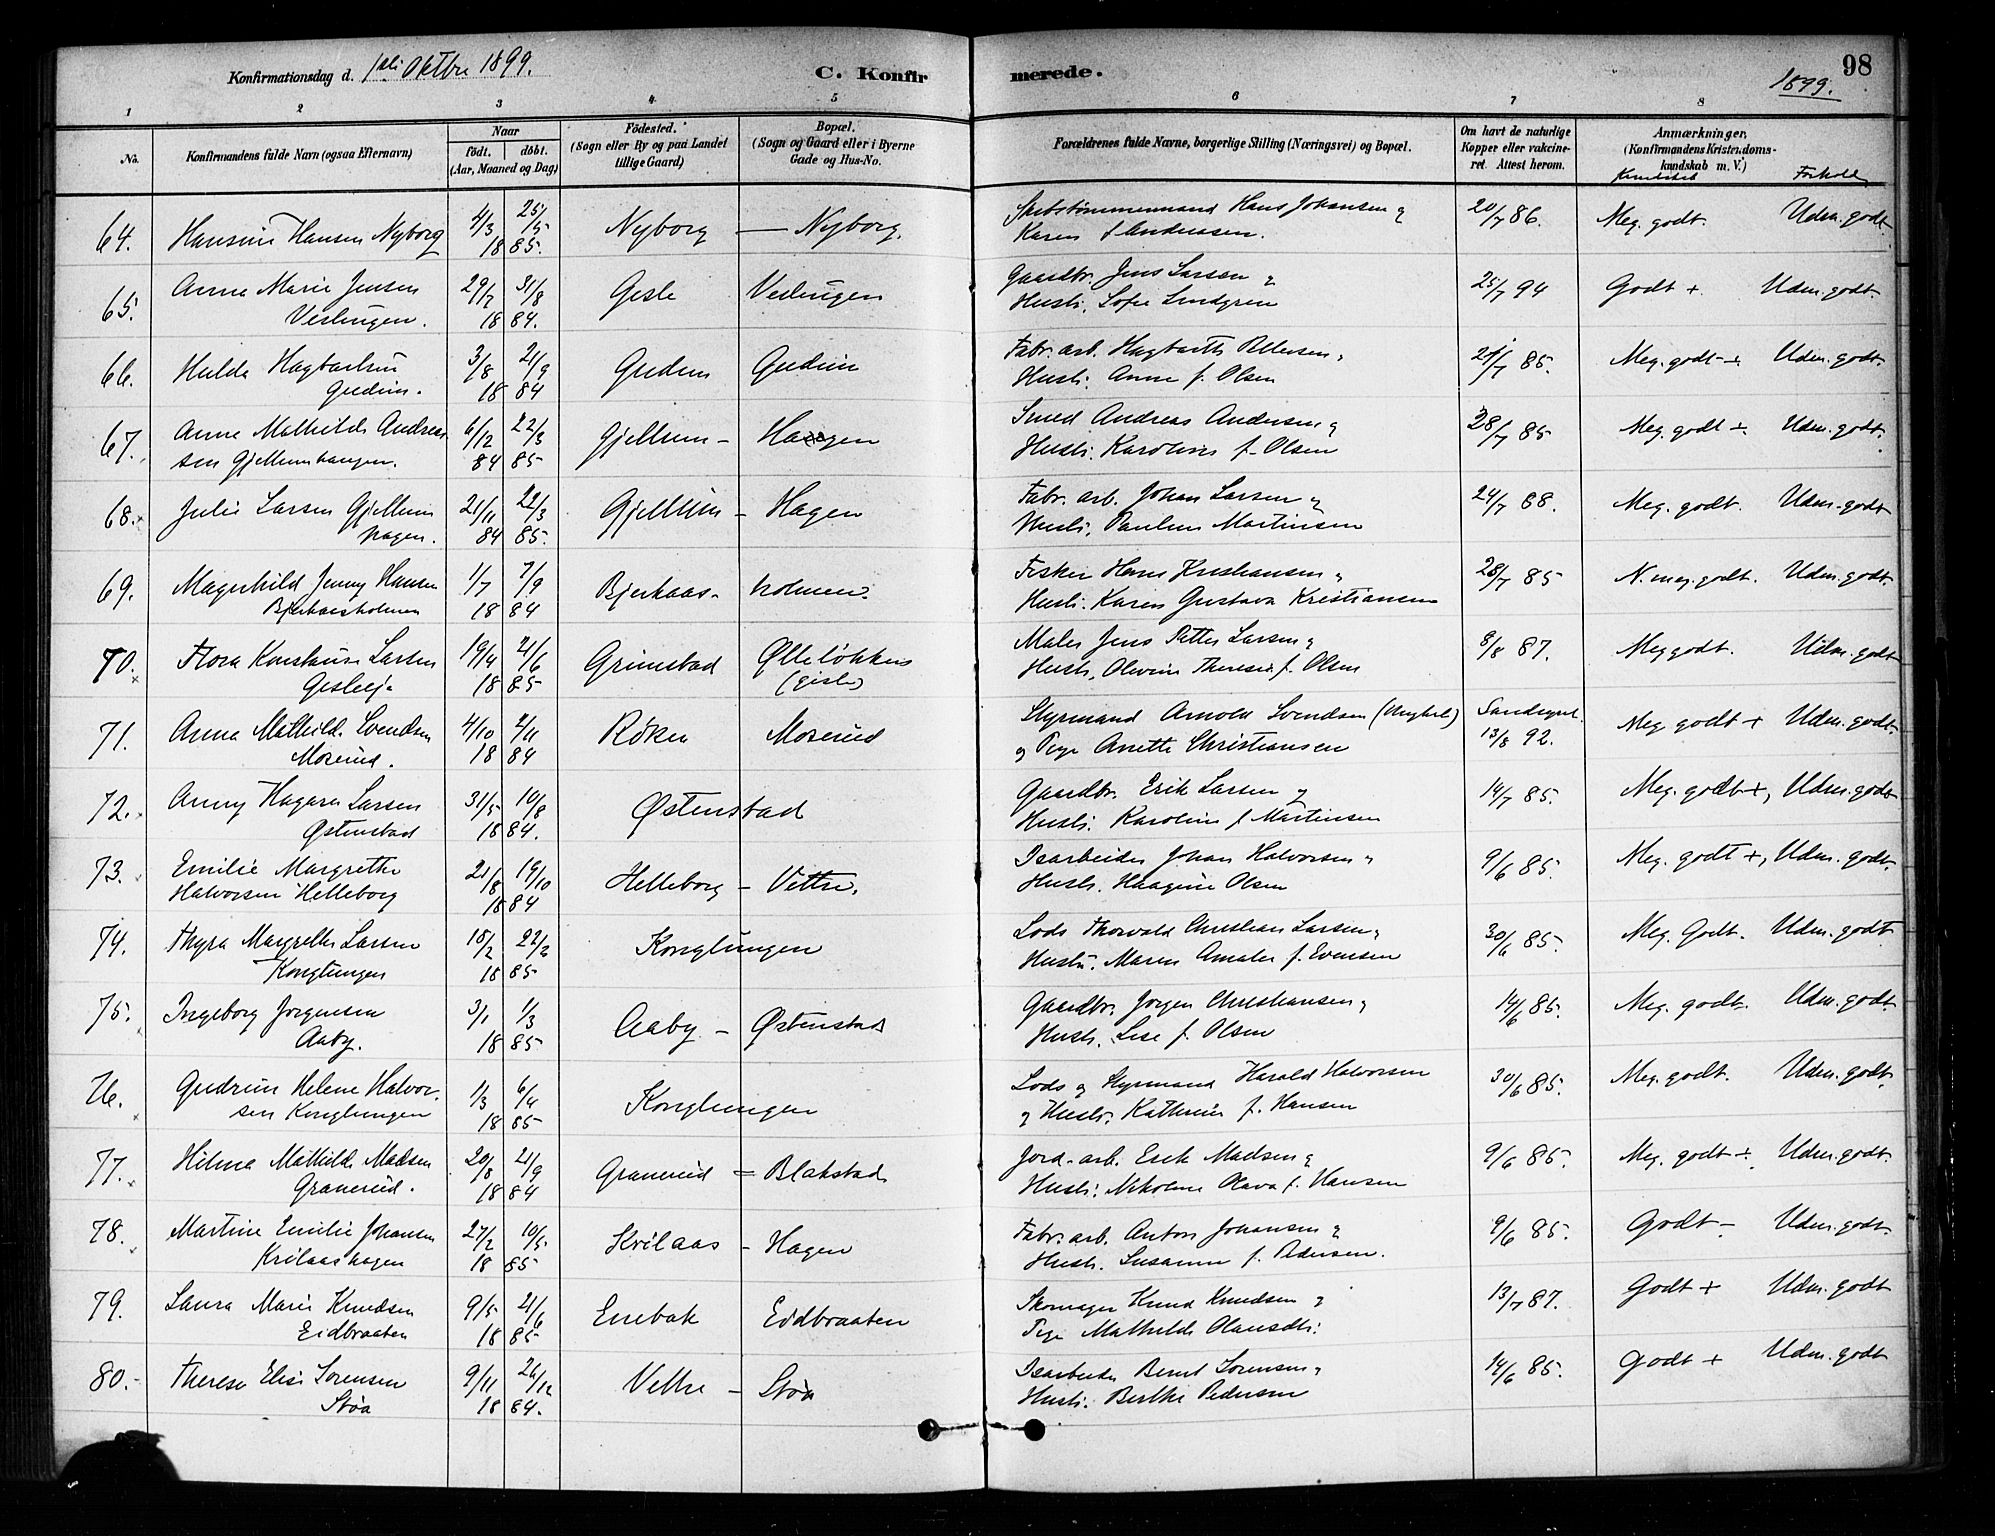 Konfirmationsdag d. 1ste Oktbr 1899.
C. Konfirmerede.
98
1899.
1 2 3 4 5 6 7 8
No.
Konfirmandens fulde Navn (ogsaa Efternavn)
Naar
födt. döbt.
(Aar, Maaned og Dag)
Födested.
(Sogn eller By og paa Landet
tillige Gaard)
Bopæl.
(Sogn og Gaard eller i Byerne
Gade og Hus-No.
Forældrenes fulde Navne, borgerlige Stilling (Næringsvei) og Bopæl.
Om havt de naturlige
Kopper eller vakcine-
ret. Attest herom.
Anmærkninger,
(Konfirmandens Kristendoms-
kundskab m. V.)
Kundskab Forhold
64. Hansine Hansen Nyborg 4/3 25/5 Nyborg — Nyborg. Hans Johansen og 20/7 86. Meg. godt. Udm. godt.
18 85. Karen f. Andersen.
65. Anna Marie Jensen 29/7 31/8 Gisle Veslungen Gaardbr. Jens Larsen og 25/7 94 Godt +. Udm. godt.
Veslungen. 18 84. Hustr. Sofie Lindgren
66. Hulda Hagbartsen 3/8 21/9 Gudum Gudum Fabr. arb. Hagbarth Pettersen, 85. Meg. godt + Udm. godt.
Gudum. 18 84 Hustr. Anne f. Olsen
67. Anna Mathilde Andrea- 6/12 22/3 Gjellum - Haagen Smed Andreas Andersen og 28/7 85 Meg. godt +. Udm. godt.
sen Gjellumhaugen. 84 85 Hustr. Karoline f. Olsen
68. Julie Larsen Gjellum 21/11 22/3 Gjellum - Hagen Fabr. arb. Johan Larsen og 24/7 88. Meg. godt. Udm. godt
hagen. 84 85. Hustr. Pauline Martinsen
69. Magnhild Jenny Hansen 1/7 7/9 Bjerkaas- holmen. Fisker Hans Kristiansen og 28/7 85 N. meg. godt. Udm. godt.
Bjerkaasholmen 18 84 Hustr. Karen Gustava Kristiansen
70. Flora Konstanse Larsen 19/4 21/6 Grimstad Ølleløkken Maler Jens Petter Larsen og 8/8 87. Meg godt. Udm. godt
18 85 (Gisle) Hustr. Olevine Theresie f. Olsen
71. Anna Mathilde Svendsen 4/10 2/11 Röken Morerud Styrmand Arnold Svendsen (Ungkarl) 13/8 92. Meg godt + Udm. godt.
Morerud. 18 84 og Pige Anette Christiansen
72. Anny Hagara Larsen 31/5 10/8 Østenstad Gaardbr. Erik Larsen og 14/7 85. Meg. godt +, Udm. godt
Østenstad 18 84. Hustr. Karoline f. Martinsen
73. Emilie Margrethe 21/8 19/10 Helleborg - Vettre. Isarbeider Johan Halvorsen og 9/6 85. Meg. godt +, Udm. godt.
Halvorsen Helleborg 18 84 Hustr. Haagine Olsen
74. Thyra Margrethe Larsen 18/2 Konglungen Lods Thorvald Christian Larsen og 30/6 85. Meg. Godt. Udm. godt
Konglungen 18 85. Hustr. Maren Amalie f. Evensen
75. Ingeborg Jörgensen 3/1 1/3 Aaby - Østenstad Gaardbr. Jørgen Christiansen og 14/6 85. Meg. godt. Udm. godt.
Aaby. 18 85 Hustr. Lise f. Olsen
76. Gudrun Helene Halvor- 1/3 6/4 Konglungen Lods og Styrmand Harald Halvorsen 30/6 85. Meg. godt. Udm. godt.
sen Konglungen 18 85 og Hustr. Kathrine f. Hansen
77. Hilma Mathilde Madsen 20/8 21/9 Granerud = Blakstad Jord-arb. Erik Madsen og 9/6 85. Meg. godt +. Udm. godt.
Granerud. 18 84 Hustr. Nikoline Olava f. Hansen
78. Martine Emilie Johansen 27/2 10/5 Krilaas - Hagen Fabr. arb. Anton Johansen og 9/6 85. Godt - Udm. godt.
Krilaashagen 18 85 Hustr. Susanne f. Pedersen.
79. Laura Marie Knudsen 9/5 21/6 Enebak Eidbraaten Skomager Knud Knudsen og 13/7 87. Godt + Udm. godt
Eidbraaten 18 85 Pige Mathilde Olausdtr.
80. Therese Elise Sorensen 9/11 26/12 Vettre - Støa Isarbeider Bernt Sorensen og 14/6 85. Godt + Udm. godt
Støa 18 84. Hustr. Berthe Pedersen